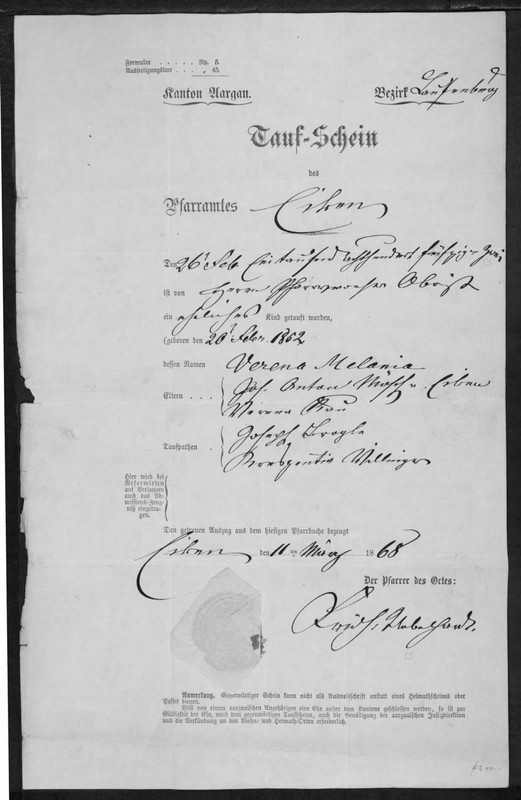 Formular . . . . . Rp. 5.
Ausfertigungstaxe . . . „ 45.
Kanton Aargau. Bezirk Laufenburg
Tauf-Schein
des
Pfarramtes Eiken
Den 26t Feb. Eintausend achthundert fünfzig zwei
ist von Herrn Pfarrverweser Obrist
ein eheliches Kind getauft worden,
(geboren den 26t Febr. 1852
dessen Namen Verena Melania
Eltern . . . Joh. Anton Müsch v. Eiken
Verena
Taufpathen . Joseph Brogle
Villiger
Hier wird bei
Reformirten
auf Verlangen
auch das Ad-
missions-Zeug-
niß eingetra-
gen.
Den getreuen Auszug aus dem hiesigen Pfarrbuche bezeugt
Eiken den 11ten März 1868
Der Pfarrer des Ortes:
Anmerkung. Gegenwärtiger Schein kann nicht als Ausweisschrift anstatt eines Heimathscheines oder
Passes dienen.
Will von einem aargauischen Angehörigen eine Ehe außer dem Kantone geschlossen werden, so ist zur
Gültigkeit der Ehe, nebst dem gegenwärtigen Taufscheine, auch die Bewilligung der aargauischen Justizdirektion
und die Verkündung an den Wohn- und Heimath-Orten erforderlich.